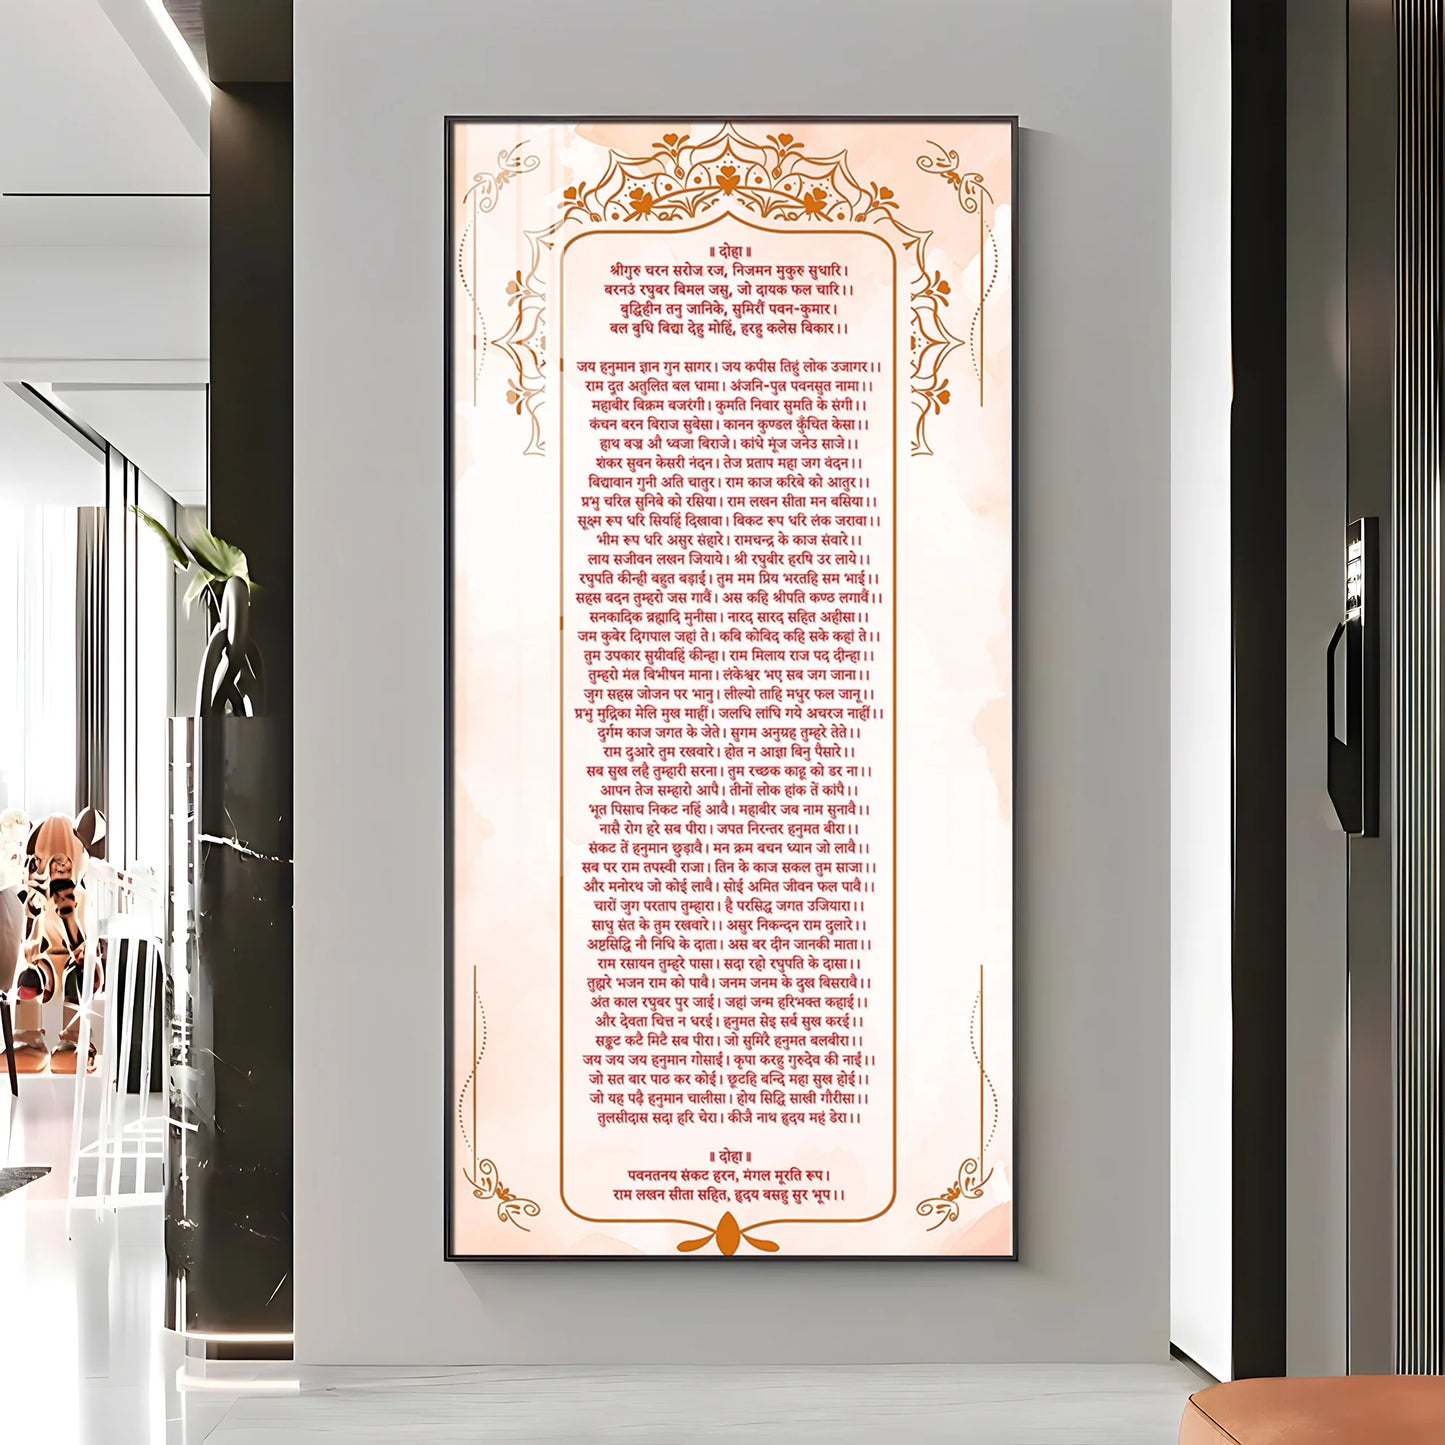 ॥ दोहा॥
श्रीगुरु चरन सरोज रज, निजमन मुकुरु सुधारि।
बरनउं रघुबर बिमल जसु, जो दायक फल चारि।।
बुद्धिहीन तनु जानिके, सुमिरौं पवन-कुमार।
बल बुधि बिद्या देहु मोहिं, हरहु कलेस बिकार।।
जय हनुमान ज्ञान गुन सागर। जय कपीस तिहुं लोक उजागर।।
राम दूत अतुलित बल धामा। अंजनि-पुत्र पवनसुत नामा।।
महाबीर बिक्रम बजरंगी। कुमति निवार सुमति के संगी।।
कंचन बरन बिराज सुबेसा। कानन कुण्डल कुँचित केसा।।
हाथ बज्र औ ध्वजा बिराजे। कांधे मूंज जनेउ साजे।।
शंकर सुवन केसरी नंदन। तेज प्रताप महा जग वंदन।।
बिद्यावान गुनी अति चातुर। राम काज करिबे को आतुर।।
प्रभु चरित्र सुनिबे को रसिया। राम लखन सीता मन बसिया।।
सूक्ष्म रूप धरि सियहिं दिखावा। बिकट रूप धरि लंक जरावा।।
भीम रूप धरि असुर संहारे। रामचन्द्र के काज संवारे।।
लाय सजीवन लखन जियाये। श्री रघुबीर हरषि उर लाये।।
रघुपति कीन्ही बहुत बड़ाई। तुम मम प्रिय भरतहि सम भाई।।
सहस बदन तुम्हरो जस गावैं। अस कहि श्रीपति कण्ठ लगावैं।।
सनकादिक ब्रह्मादि मुनीसा। नारद सारद सहित अहीसा।।
जम कुबेर दिगपाल जहां ते। कबि कोबिद कहि सके कहां ते।।
तुम उपकार सुग्रीवहिं कीन्हा। राम मिलाय राज पद दीन्हा।।
तुम्हरो मंत्र बिभीषन माना। लंकेश्वर भए सब जग जाना।।
जुग सहस्र जोजन पर भानु। लील्यो ताहि मधुर फल जानू।।
प्रभु मुद्रिका मेलि मुख माहीं। जलधि लांघि गये अचरज नाहीं।।
दुर्गम काज जगत के जेते। सुगम अनुग्रह तुम्हरे तेते।।
राम दुआरे तुम रखवारे। होत न आज्ञा बिनु पैसारे।।
सब सुख लहै तुम्हारी सरना। तुम रच्छक काहू को डर ना।।
आपन तेज सम्हारो आपै। तीनों लोक हांक तें कांपै।।
भूत पिसाच निकट नहिं आवै। महाबीर जब नाम सुनावै।।
नासै रोग हरे सब पीरा। जपत निरन्तर हनुमत बीरा।।
संकट तें हनुमान छुड़ावै। मन क्रम बचन ध्यान जो लावै।।
सब पर राम तपस्वी राजा। तिन के काज सकल तुम साजा।।
और मनोरथ जो कोई लावै। सोई अमित जीवन फल पावै।।
चारों जुग परताप तुम्हारा। है परसिद्ध जगत उजियारा।।
साधु संत के तुम रखवारे।। असुर निकन्दन राम दुलारे।।
अष्टसिद्धि नौ निधि के दाता। अस बर दीन जानकी माता।।
राम रसायन तुम्हरे पासा। सदा रहो रघुपति के दासा।।
तुह्मरे भजन राम को पावै। जनम जनम के दुख बिसरावै।।
अंत काल रघुबर पुर जाई। जहां जन्म हरिभक्त कहाई।।
और देवता चित्त न धरई। हनुमत सेइ सर्ब सुख करई।।
सङ्कट कटै मिटै सब पीरा। जो सुमिरै हनुमत बलबीरा।।
जय जय जय हनुमान गोसाईं। कृपा करहु गुरुदेव की नाईं।।
जो सत बार पाठ कर कोई। छूटहि बन्दि महा सुख होई।।
जो यह पढ़ै हनुमान चालीसा। होय सिद्धि साखी गौरीसा।।
तुलसीदास सदा हरि चेरा। कीजै नाथ हृदय महं डेरा।।
॥ दोहा॥
पवनतनय संकट हरन, मंगल मूरति रूप।
राम लखन सीता सहित, हृदय बसहु सुर भूप।।